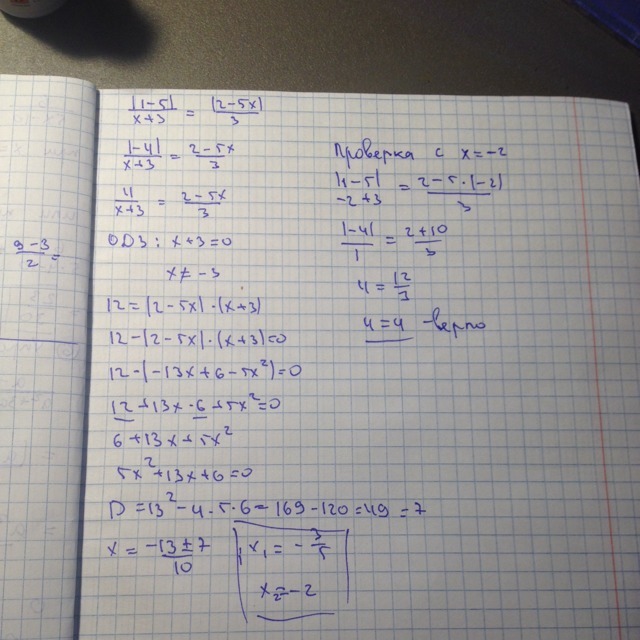 |1-5|/(x+3) = (2-5x)/3
|-4|/(x+3) = (2-5x)/3
4/(x+3) = (2-5x)/3
ОДЗ: x+3=0
x≠-3
12=(2-5x)·(x+3)
12-(2-5x)·(x+3)=0
12-(-13x+6-5x²)=0
12+13x-6+5x²=0
6+13x+5x²
5x²+13x+6=0
D=13²-4·5·6=169-120=49=7
x=(-13±7)/10
x₁=-3/5
x₂=-2
Проверка с x=-2
|1-5|/(-2+3) = (2-5·(-2))/3
|-4|/1 = (2+10)/3
4=12/3
4=4 -верно
(9-3)/2=